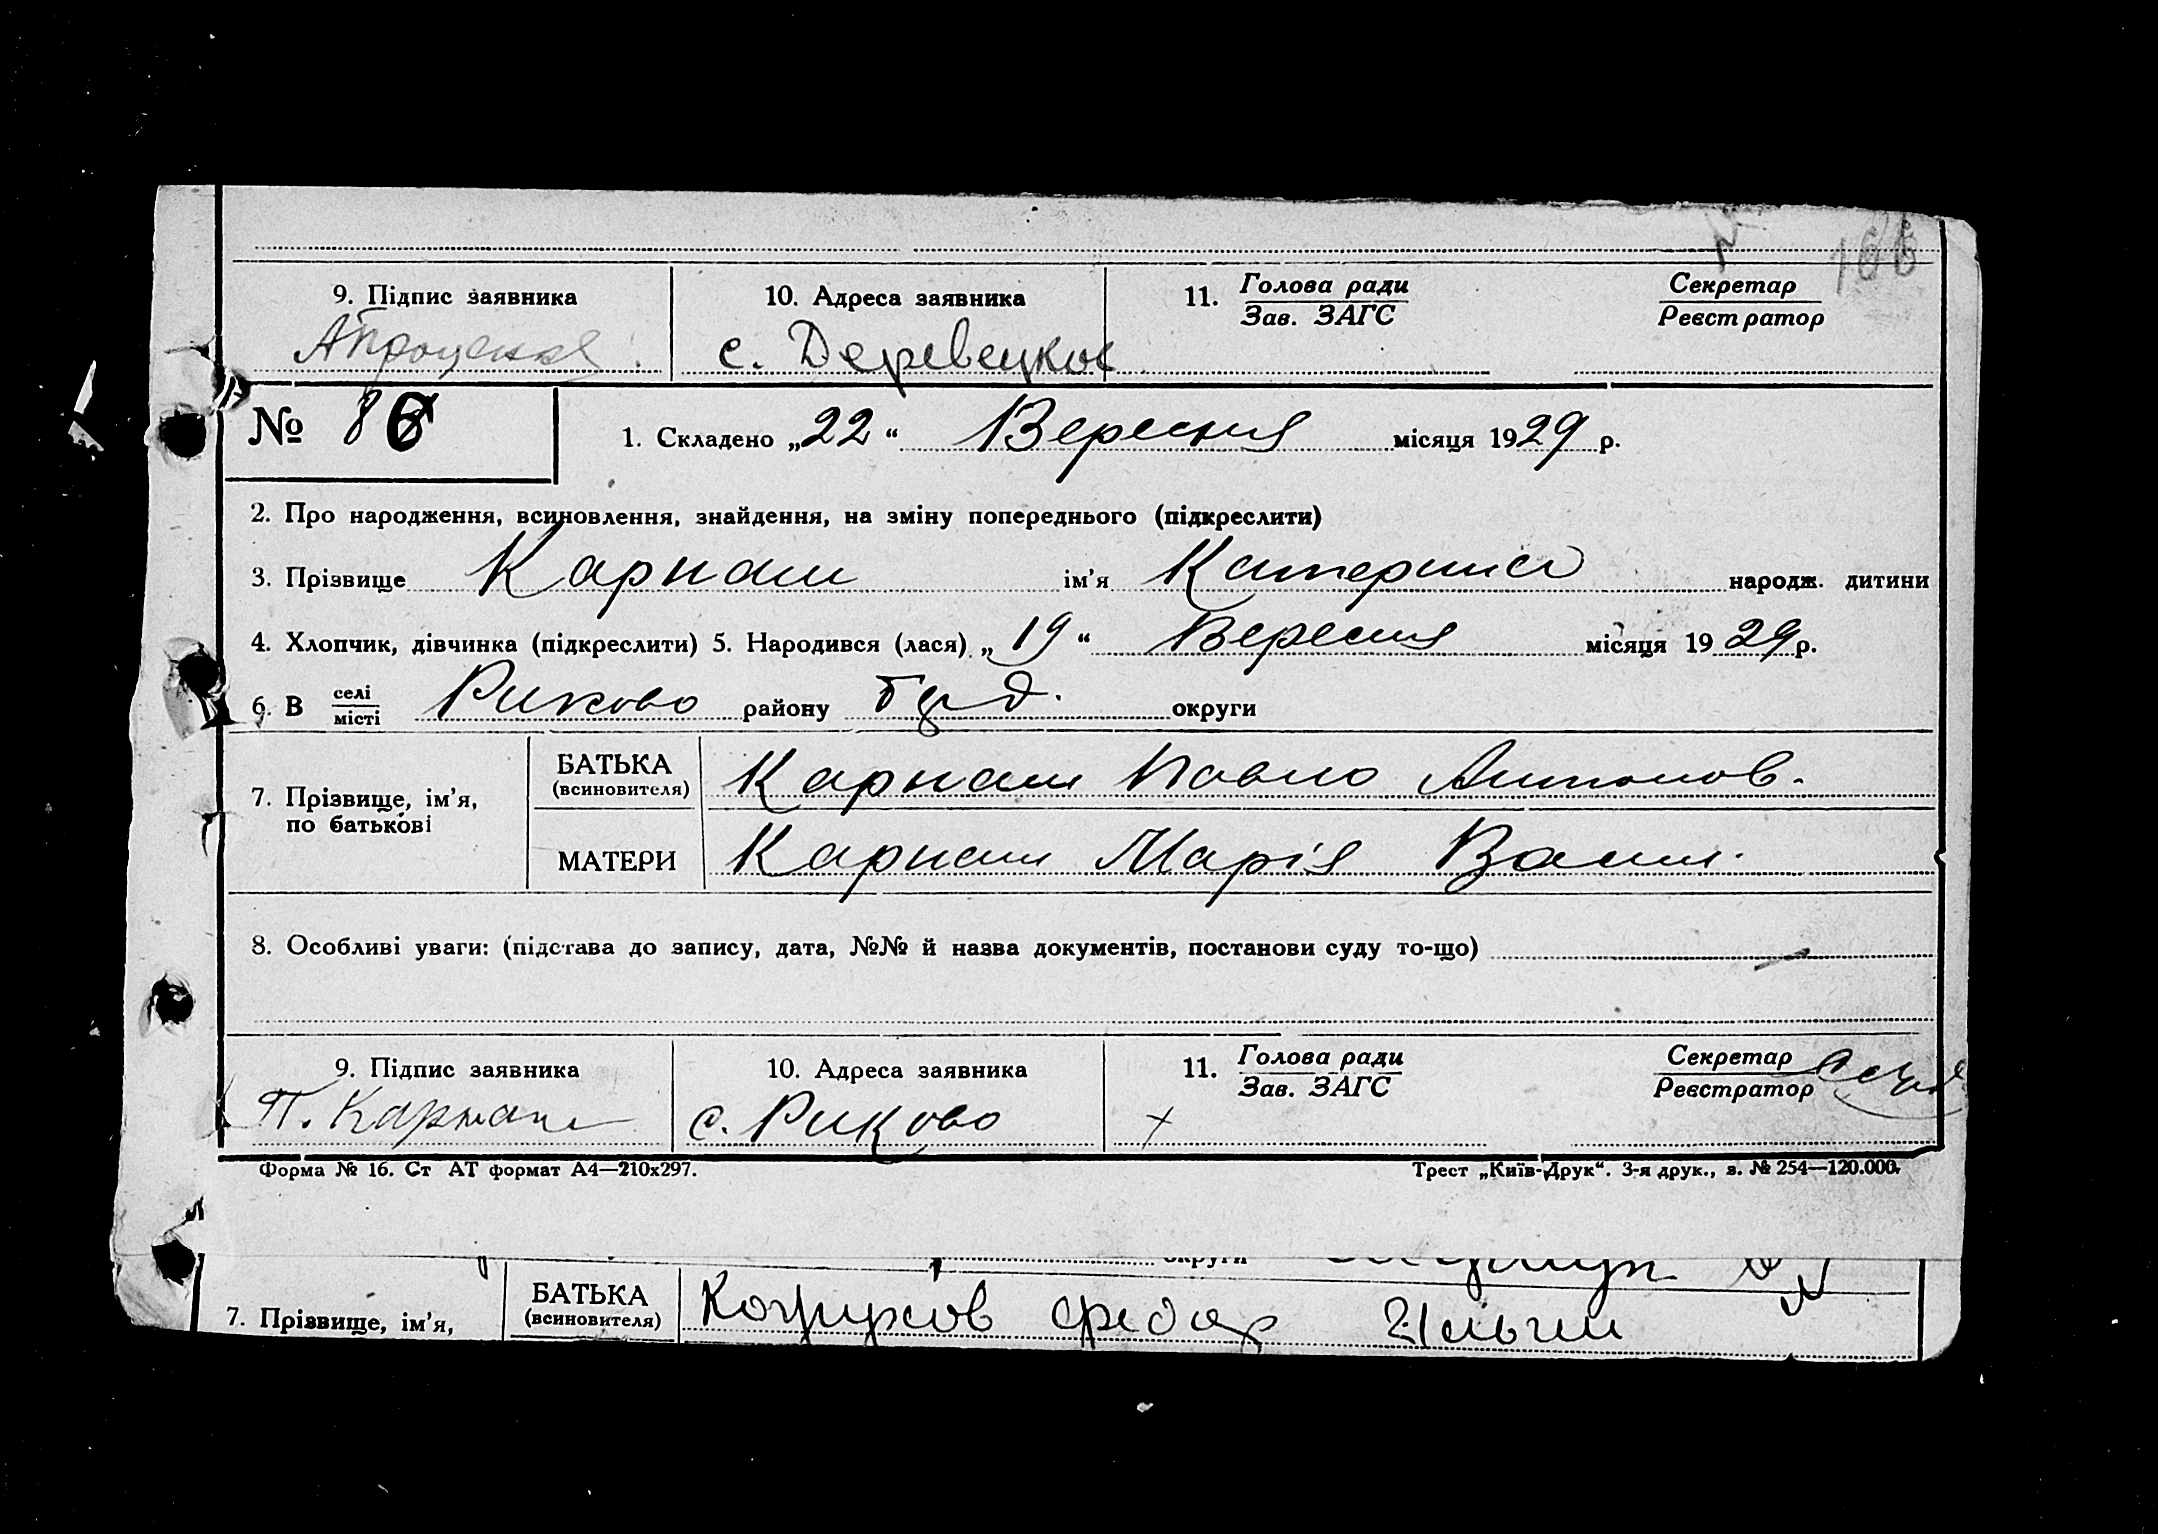 166
9. Підпис заявника 10. Адреса заявника 11. Голова ради Секретар
Зав. ЗАГС Реєстратор
АПроценко с. Деревецкое
№ 86 1. Складено „22“ Вересня місяця 1929 р.
2. Про народження, всиновлення, знайдення, на зміну попереднього (підкреслити)
3. Прізвище Карнаш ім'я Катерина народж. дитини
4. Хлопчик, дівчинка (підкреслити) 5. Народився (лася) „19“ Вересня місяця 1929 р.
6. В селі Риково району округи
місті
БАТЬКА Карнаш Павло Антонов.
(всиновителя)
7. Прізвище, ім'я,
по батькові
МАТЕРИ Карнаш Марія Васил.
8. Особливі уваги: (підстава до запису, дата, №№ й назва документів, постанови суду то-що)
9. Підпис заявника 10. Адреса заявника 11. Голова ради Секретар
Зав. ЗАГС Реєстратор
П. Карнаш с. Риково
Форма № 16. Ст АТ формат А4—210х297. Трест „Київ-Друк“. 3-я друк., з. № 254—120.000.
округи
БАТЬКА
(всиновителя)
7. Прізвище, ім'я,